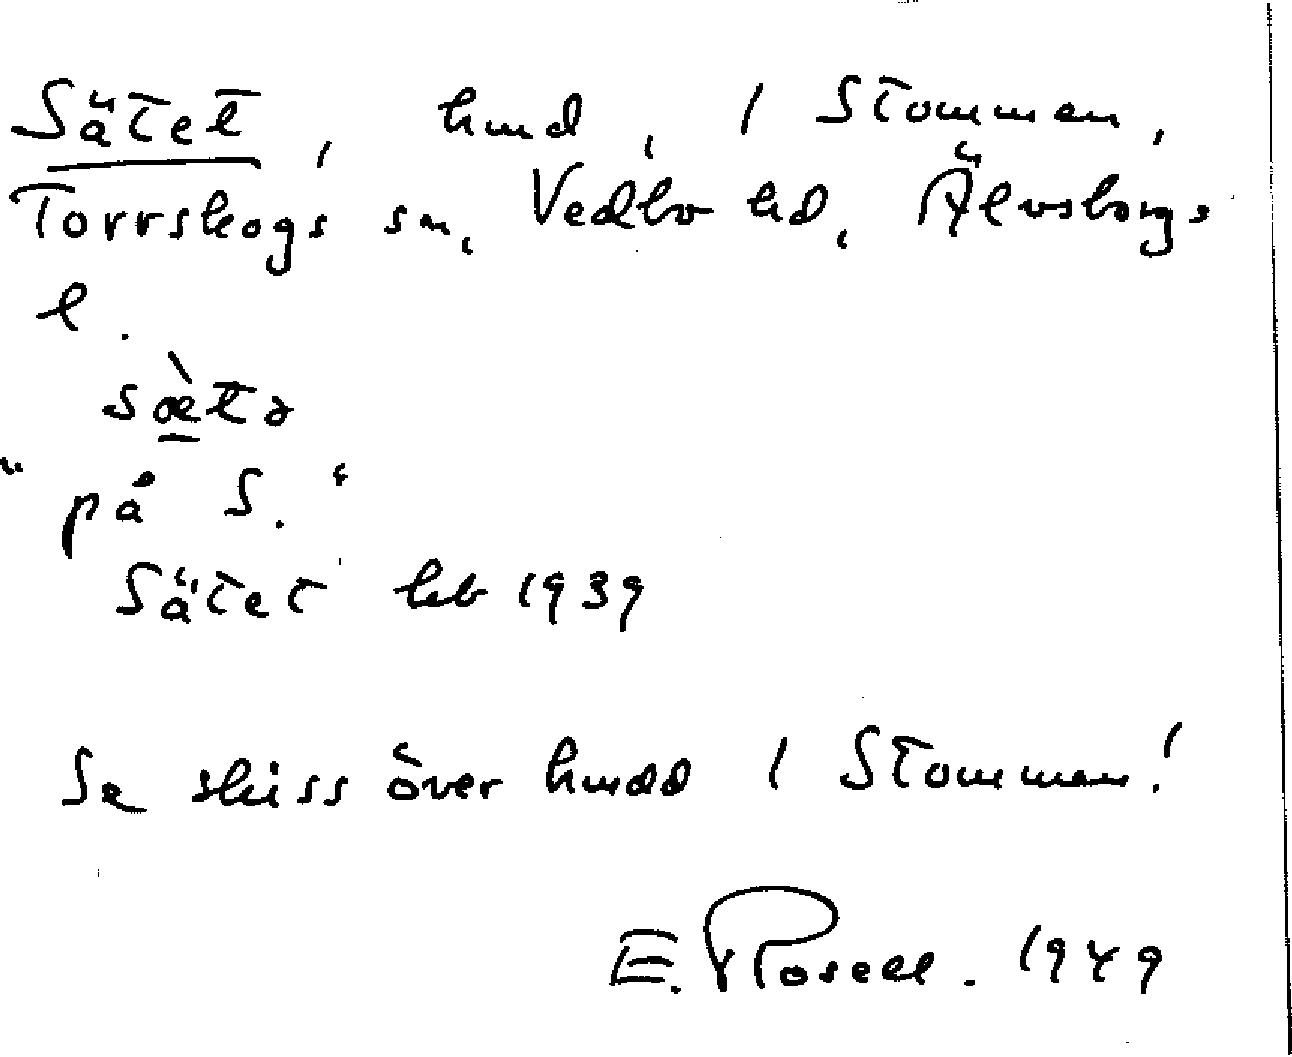 Sätet, hmd, 1 Stommen,
Torrskogs sn, Vedbo hd, Älvsborgs
l.
sæ̀tə
"på S."
Sätet hb 1939
Se skiss över hmdd 1 Stommen!
E. Rosell. 1949